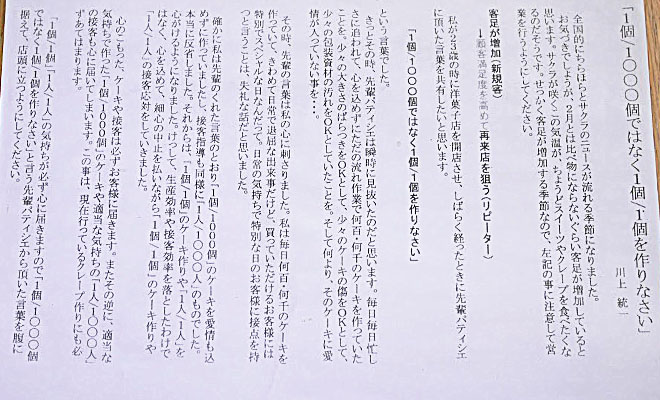 「1個\1000個ではなく1個\1個を作りなさい」
川上 統一
全国的にちらほらとサクラのニュースが流れる季節になりました。
お気づきでしょうが、2月とは比べ物にならないぐらい客足が増加していると
思います。サクラが咲くこの気温が、ちょうどスイーツやクレープを食べたくな
るのだそうです。せっかく客足が増加する季節なので、左記の事に注意して営
業を行うようにしてください。
客足が増加(新規客)
→顧客満足度を高めて再来店を狙う(リピーター)
私が23歳の時に洋菓子店を開店させ、しばらく経ったときに先輩パティシエ
に頂いた言葉を共有したいと思います。
「1個\1000個ではなく1個\1個を作りなさい」
という言葉でした。
きっとその時、先輩パティシエは瞬時に見抜いたのだと思います。毎日毎日忙し
さに追わて、心を込めずにただの流れ作業で何百・何千のケーキを作っていた
ことを。少々の大きさのばらつきをOKとして、少々のケーキの傷をOKとして、
少々の包装資材の汚れをOKとしていたことを。そして何より、そのケーキに愛
情が入っていない事を・・・。
その時、先輩の言葉は私の心に刺さりました。私は毎日何百・何千のケーキを
作っていて、きわめて日常で退屈な出来事だけど、買っていただけるお客様には
特別でスペシャルな日なんだって。日常の気持ちで特別な日のお客様に接点を持
つと言うことは、失礼な話だと思いました。
確かに私は先輩のくれた言葉のとおり「1個\1000個」のケーキを愛情も込
めずに作っていましたし、接客指導も同様に「1人\1000人」のものでした。
本当に反省しました。それからは、「1個\1個」のケーキ作りや、「1人\1人」を
心がけるようになりました。けっして、生産効率や接客効率を落としたわけで
はなく、心を込めて、細心の中止を払いながら「1個\1個」のケーキ作りや
「1人\1人」の接客応対をしていきました。
心のこもった、ケーキや接客は必ずお客様に届きます。またその逆に、適当な
気持ちで作った「1個\1000個」のケーキや適当な気持ちの「1人\1000人」
の接客も心に届いてしまいます。この事は、現在行っているクレープ作りにも必
ずあてはまります。
「1個\1個」「1人\1人」の気持ちが必ず心に届きますので「1個\1000個
ではなく1個\1個を作りなさい」と言う先輩パティシエから頂いた言葉を腹に
据えて、店頭に立つようにしてください。